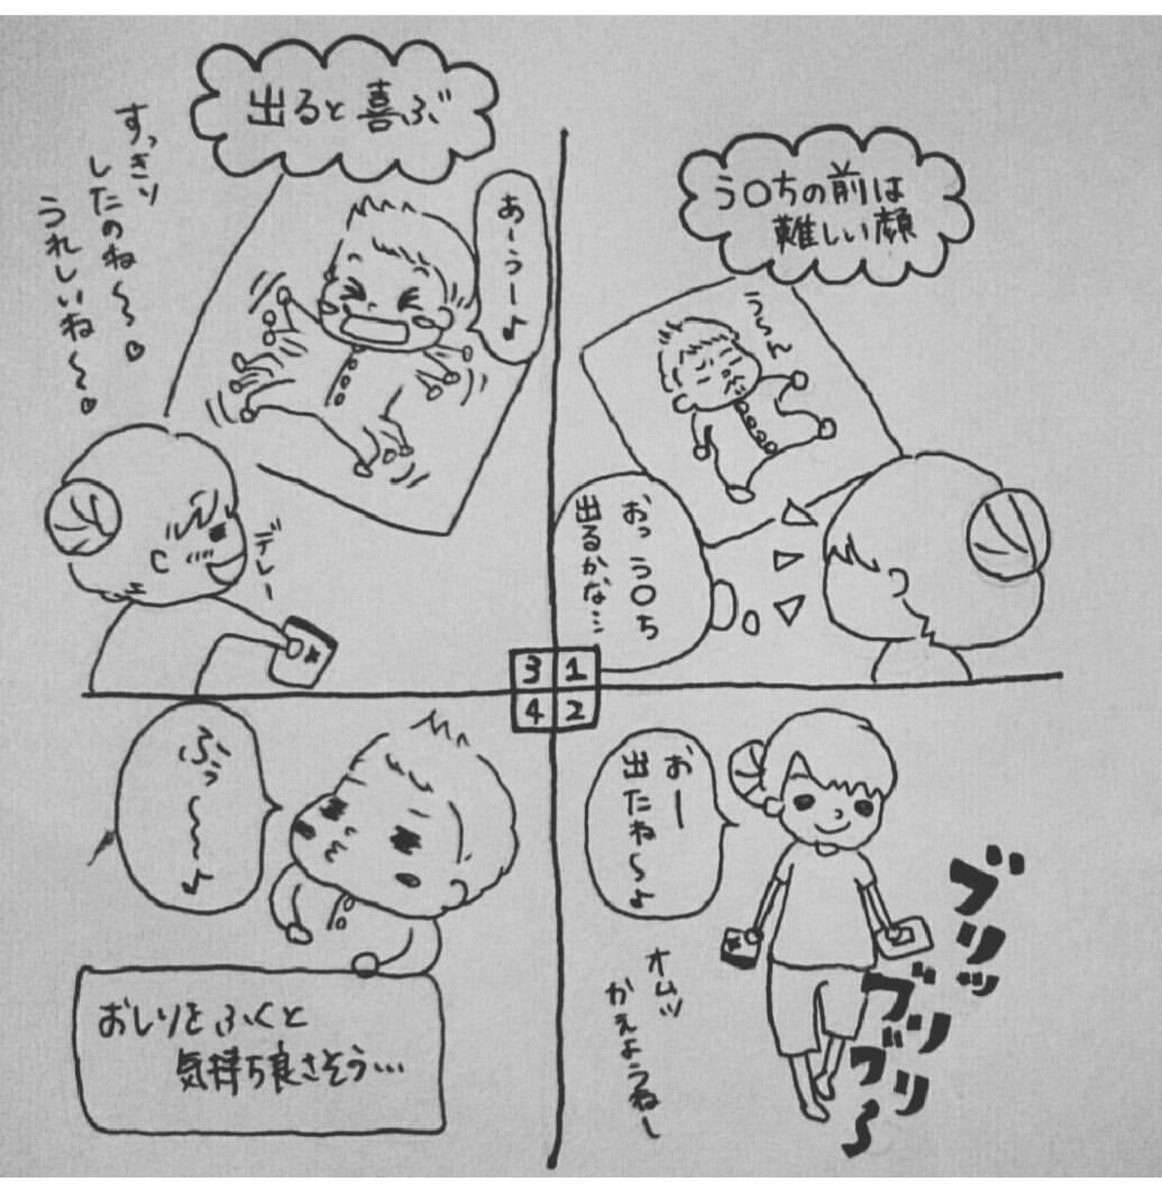 う〇ちの前は
難しい顔
う〜ん
おっ う〇ち
出るかな…
1
2
おー
出たね〜♪
オムツ
かえようねー
ブリッ
ブリ
ブリ〜
3
出ると喜ぶ
あーうー♪
すっきり
したのね〜♡
うれしいね〜♡
デレー
4
ふぅ〜〜〜♪
おしりをふくと
気持ち良さそう…